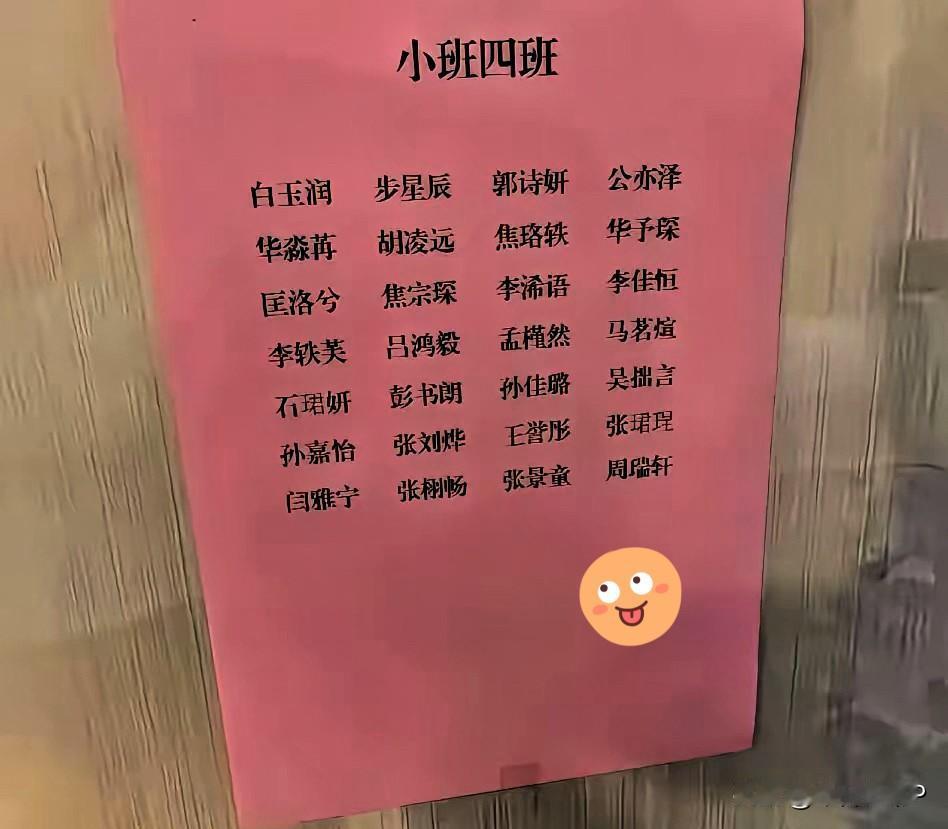 小班四班
白玉润 步星辰 郭诗妍 公亦泽
华淼苒 胡凌远 焦珞轶 华予琛
匡洛兮 焦宗琛 李浠语 李佳恒
李轶芙 吕鸿毅 孟槿然 马茗煊
石珺妍 彭书朗 孙佳璐 吴拙言
孙嘉怡 张刘烨 王誉彤 张珺珵
闫雅宁 张栩畅 张景童 周瑞轩